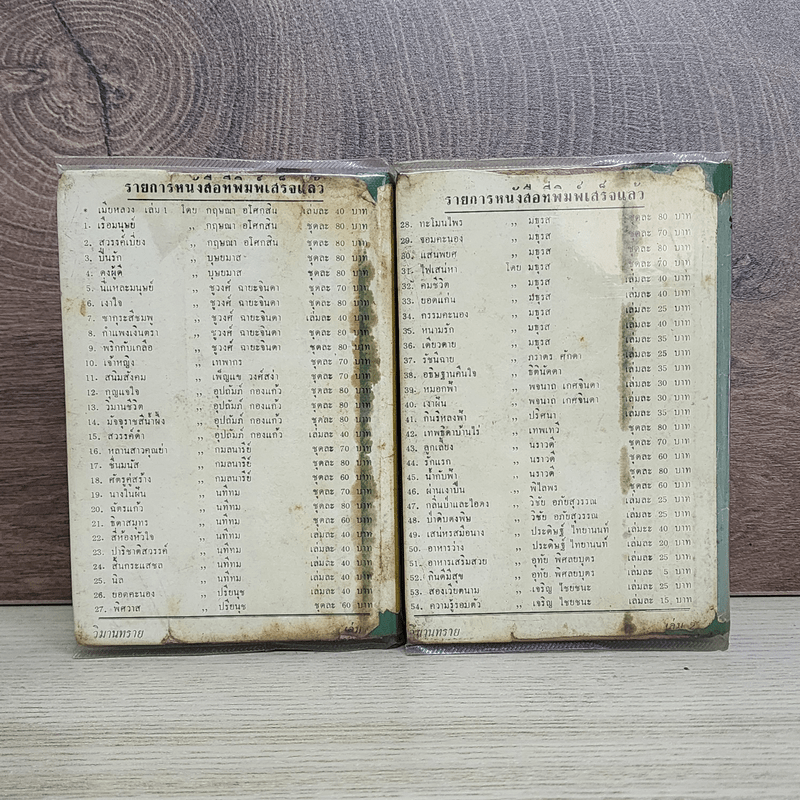 รายการหนังสือที่พิมพ์เสร็จแล้ว
* เมียหลวง เล่ม 1 โดย กฤษณา อโศกสิน เล่มละ 40 บาท
1. เรือมนุษย์ ,, กฤษณา อโศกสิน ชุดละ 80 บาท
2. สวรรค์เบี่ยง ,, กฤษณา อโศกสิน ชุดละ 80 บาท
3. ปิ่นรัก ,, บุษยมาส ชุดละ 80 บาท
4. ดงผู้ดี ,, บุษยมาส ชุดละ 80 บาท
5. นี่แหละมนุษย์ ,, ชูวงศ์ ฉายะจินดา ชุดละ 70 บาท
6. เงาใจ ,, ชูวงศ์ ฉายะจินดา ชุดละ 80 บาท
7. ซากุระสีชมพู ,, ชูวงศ์ ฉายะจินดา เล่มละ 40 บาท
8. กำแพงเงินตรา ,, ชูวงศ์ ฉายะจินดา ชุดละ 80 บาท
9. พริกกับเกลือ ,, ชูวงศ์ ฉายะจินดา ชุดละ 80 บาท
10. เจ้าหญิง ,, เทพากร ชุดละ 70 บาท
11. สนิมสังคม ,, เพ็ญแข วงศ์สง่า ชุดละ 70 บาท
12. กุญแจใจ ,, อุปถัมภ์ กองแก้ว ชุดละ 80 บาท
13. วิมานชีวิต ,, อุปถัมภ์ กองแก้ว ชุดละ 80 บาท
14. มัจจุราชสีน้ำผึ้ง ,, อุปถัมภ์ กองแก้ว ชุดละ 80 บาท
15. สวรรค์ดำ ,, อุปถัมภ์ กองแก้ว เล่มละ 40 บาท
16. หลานสาวคุณย่า ,, กมลนารีย์ ชุดละ 70 บาท
17. ชื่นมนัส ,, กมลนารีย์ ชุดละ 80 บาท
18. ศัตรูคู่สร้าง ,, กมลนารีย์ ชุดละ 60 บาท
19. นางในฝัน ,, นทีทม ชุดละ 80 บาท
20. ฉัตรแก้ว ,, นทีทม ชุดละ 80 บาท
21. ธิดาสมุทร ,, นทีทม ชุดละ 60 บาท
22. สี่ห้องหัวใจ ,, นทีทม เล่มละ 40 บาท
23. ปาริชาติสวรรค์ ,, นทีทม เล่มละ 40 บาท
24. สิ้นกระแสชล ,, นทีทม เล่มละ 40 บาท
25. นิล ,, นทีทม เล่มละ 40 บาท
26. ยอดคะนอง ,, ปรียนุช เล่มละ 40 บาท
27. พิศวาส ,, ปรียนุช ชุดละ 60 บาท
วิมานทราย เล่ม
รายการหนังสือที่พิมพ์เสร็จแล้ว
28. ทะโมนไพร ,, มธุรส ชุดละ 80 บาท
29. จอมคะนอง ,, มธุรส ชุดละ 80 บาท
30. แสนพยศ ,, มธุรส ชุดละ 80 บาท
31. ไฟเสน่หา โดย มธุรส ชุดละ 70 บาท
32. คมชีวิต ,, มธุรส เล่มละ 40 บาท
33. ยอดแก่น ,, มธุรส ชุดละ 80 บาท
34. กรรมคะนอง ,, มธุรส เล่มละ 25 บาท
35. หนามรัก ,, มธุรส เล่มละ 40 บาท
36. เดียวดาย ,, มธุรส เล่มละ 35 บาท
37. รัชนีฉาย ,, ภราดร ศักดา เล่มละ 25 บาท
38. อธิษฐานคืนใจ ,, ธิตินัดดา เล่มละ 40 บาท
39. หมอกฟ้า ,, พจนาถ เกศจินดา เล่มละ 35 บาท
40. เงาฝัน ,, พจนาถ เกศจินดา เล่มละ 35 บาท
41. กินรีหลงฟ้า ,, ปริศนา เล่มละ 35 บาท
42. เทพธิดาบ้านไร่ ,, เทพเทวี ชุดละ 70 บาท
43. ลูกเลี้ยง ,, นราวดี เล่มละ 30 บาท
44. รักแรก ,, นราวดี ชุดละ 60 บาท
45. น้ำกับฟ้า ,, นราวดี ชุดละ 80 บาท
46. ม่านเงาบุญ ,, พิไลพร ชุดละ 60 บาท
47. กลิ่นป่าและไอดง ,, วิชัย อภัยสุวรรณ เล่มละ 25 บาท
48. ป่าดิบดงพืษ ,, วิชัย อภัยสุวรรณ เล่มละ 25 บาท
49. เสน่หรสมือนาง ,, ประดิษฐ์ ไทยานนท์ เล่มละ 40 บาท
50. อาหารว่าง ,, ประดิษฐ์ ไทยานนท์ เล่มละ 20 บาท
51. อาหารเสริมสวย ,, อุทัย พิศลยบุตร เล่มละ 25 บาท
52. กินดีมีสุข ,, อุทัย พิศลยบุตร เล่มละ 5 บาท
53. สองเวียดนาม ,, เจริญ ไชยชนะ เล่มละ 25 บาท
54. ความรู้รอบตัว ,, เจริญ ไชยชนะ เล่มละ 15 บาท
วิมานทราย เล่ม